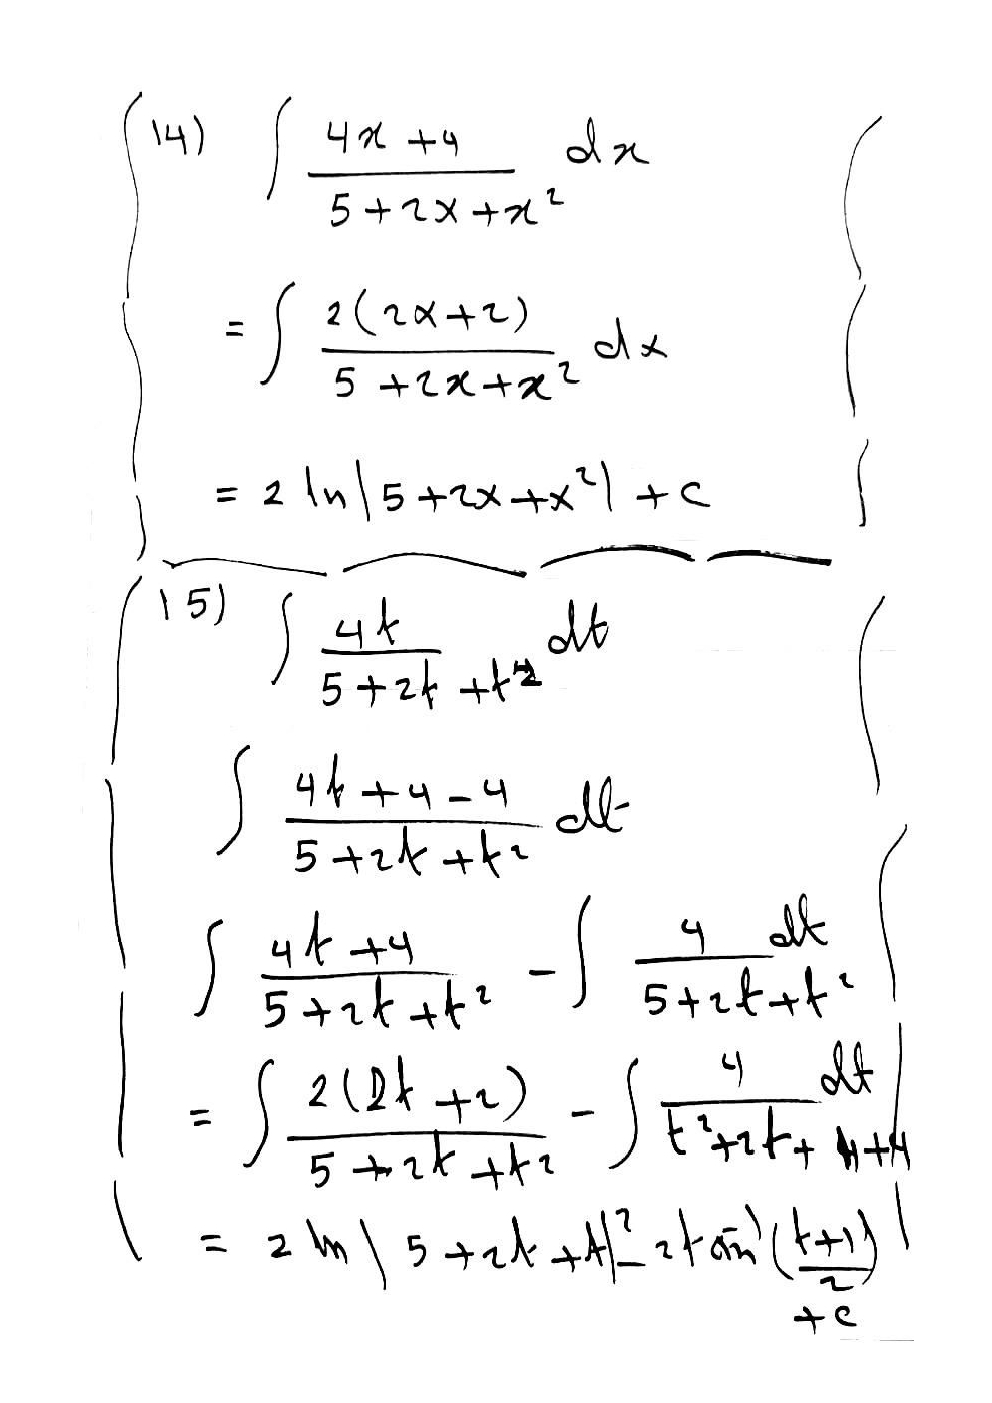 14) ∫ (4x + 4)/(5 + 2x + x²) dx
= ∫ 2(2x + 2)/(5 + 2x + x²) dx
= 2 ln|5 + 2x + x²| + c
15) ∫ 4t/(5 + 2t + t²) dt
∫ (4t + 4 - 4)/(5 + 2t + t²) dt
∫ (4t + 4)/(5 + 2t + t²) - ∫ 4 dt/(5 + 2t + t²)
= ∫ 2(2t + 2)/(5 + 2t + t²) - ∫ 4 dt/(t² + 2t + 1 + 4)
= 2 ln|5 + 2t + t²| - 2 tan⁻¹((t+1)/2)
+ c